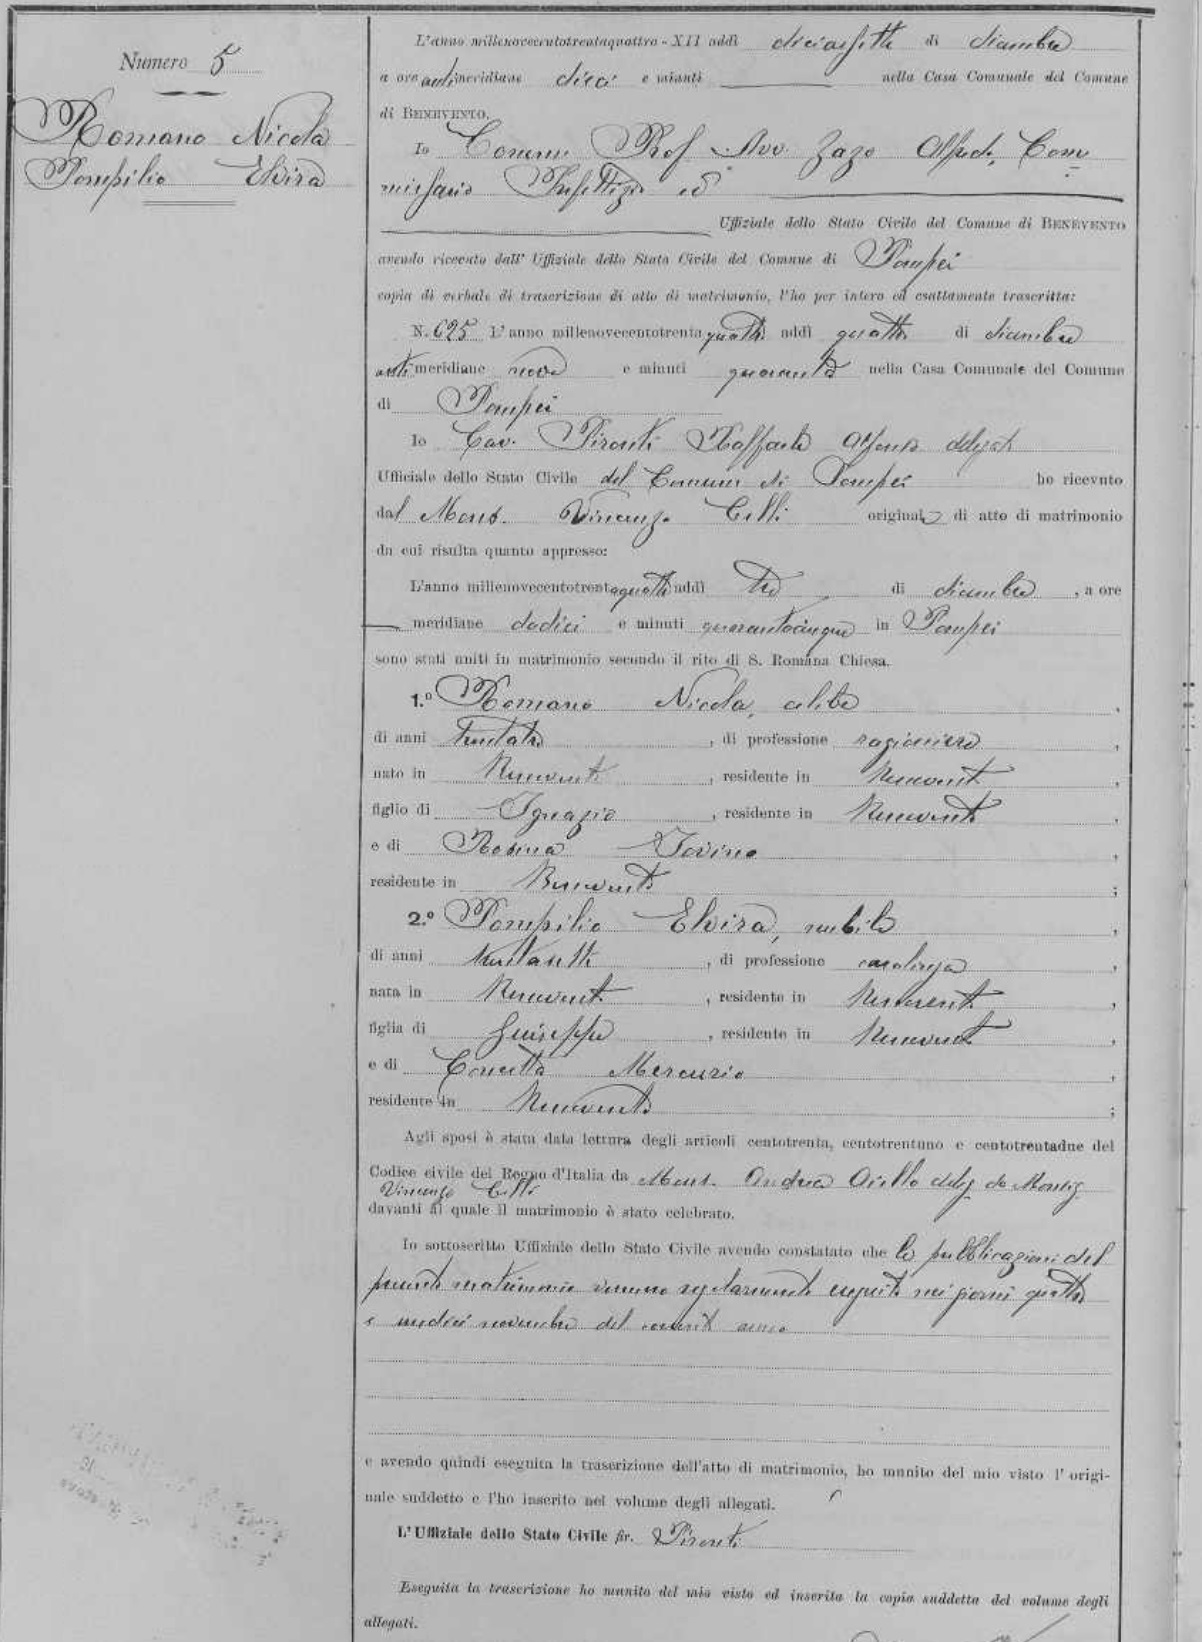 Numero 5
Romano Nicola
Pompilio Elvira
L'anno millenovecentotrentaquattro - XII addì diciassette di dicembre
a ore antimeridiane dieci e minuti nella Casa Comunale del Comune
di BENEVENTO.
Io Comm Prof. Avv. Zazo Alfredo, Com
missario Prefettizio ed
Uffiziale dello Stato Civile del Comune di BENEVENTO
avendo ricevuto dall' Uffiziale dello Stato Civile del Comune di Pompei
copia di verbale di trascrizione di atto di matrimonio, l'ho per intero ed esattamente trascritta:
N. 695 L'anno millenovecentotrentaquattro addì quattro di dicembre
antimeridiane nove e minuti quaranta nella Casa Comunale del Comune
di Pompei
Io Cav. Pironti Raffaele Alfonso delegato
Ufficiale dello Stato Civile del Comune di Pompei ho ricevuto
dal Mons. Vincenzo Celli originale di atto di matrimonio
da cui risulta quanto appresso:
L'anno millenovecentotrentaquattro addì tre di dicembre, a ore
meridiane dodici e minuti quarantacinque in Pompei
sono stati uniti in matrimonio secondo il rito di S. Romana Chiesa.
1.º Romano Nicola, celibe,
di anni trentatre, di professione ragioniere,
nato in Benevento, residente in Benevento,
figlio di Ignazio, residente in Benevento,
e di Rosina Iovino,
residente in Benevento;
2.º Pompilio Elvira, nubile,
di anni trentasette, di professione casalinga,
nata in Benevento, residente in Benevento,
figlia di Giuseppe, residente in Benevento,
e di Concetta Mercurio,
residente in Benevento;
Agli sposi è stata data lettura degli articoli centotrenta, centotrentuno e centotrentadue del
Codice civile del Regno d'Italia da Mons. Andrea Aiello deleg. da Monsig.
Vincenzo Celli
davanti al quale il matrimonio è stato celebrato.
Io sottoscritto Uffiziale dello Stato Civile avendo constatato che le pubblicazioni del
presente matrimonio vennero regolarmente eseguite nei giorni quattro
e undici novembre del corrente anno
e avendo quindi eseguita la trascrizione dell'atto di matrimonio, ho munito del mio visto l' origi-
nale suddetto e l'ho inserito nel volume degli allegati.
L'Uffiziale dello Stato Civile fir. Pironti
Eseguita la trascrizione ho munito del mio visto ed inserita la copia suddetta del volume degli
allegati.